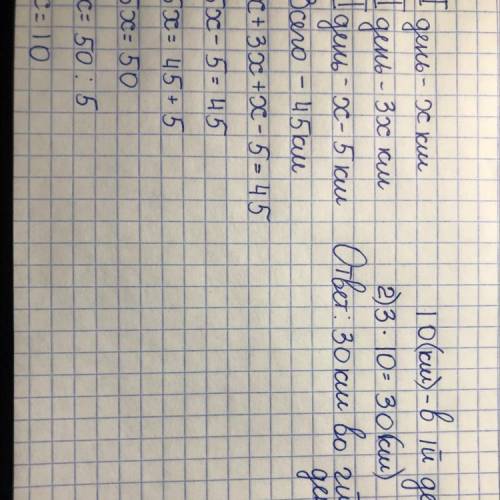 I день - x км
I день - 3x км
I день - x - 5 км
Всего - 45 км
x + 3x + x - 5 = 45
5x - 5 = 45
5x = 45 + 5
5x = 50
x = 50 : 5
x = 10
10 (км) - в 1й
2) 3 · 10 = 30 (км)
Ответ: 30 км во